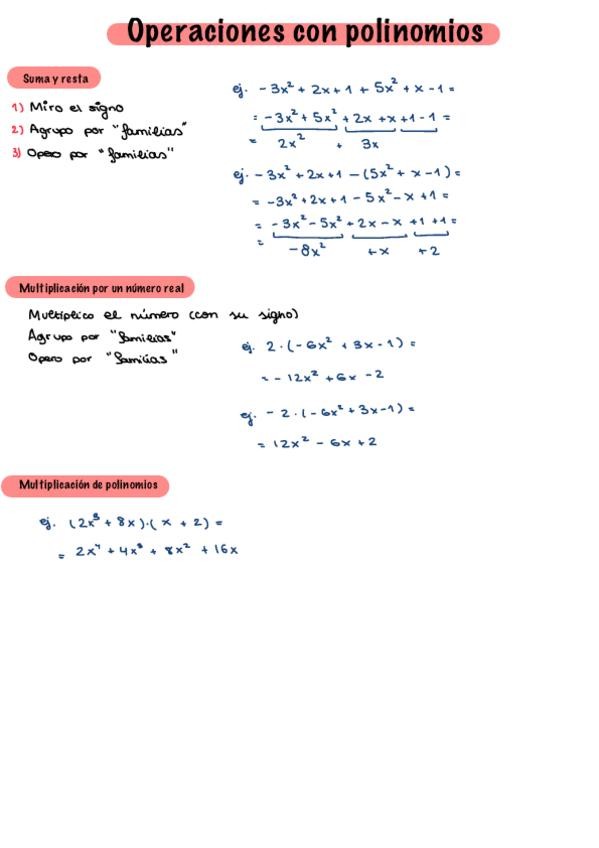 Operaciones con polinomios
Suma y resta
1) Miro el signo
2) Agrupo por "familias"
3) Opero por "familias"
ej. - 3x² + 2x + 1 + 5x² + x - 1 =
= - 3x² + 5x² + 2x + x + 1 - 1 =
= 2x² + 3x
ej. - 3x² + 2x + 1 - (5x² + x - 1) =
= - 3x² + 2x + 1 - 5x² - x + 1 =
= - 3x² - 5x² + 2x - x + 1 + 1 =
= - 8x² + x + 2
Multiplicación por un número real
Multiplico el número (con su signo)
Agrupo por "familias"
Opero por "familias"
ej. 2 · (- 6x² + 3x - 1) =
= - 12x² + 6x - 2
ej. - 2 · (- 6x² + 3x - 1) =
= 12x² - 6x + 2
Multiplicación de polinomios
ej. (2x³ + 8x) · (x + 2) =
= 2x⁴ + 4x³ + 8x² + 16x